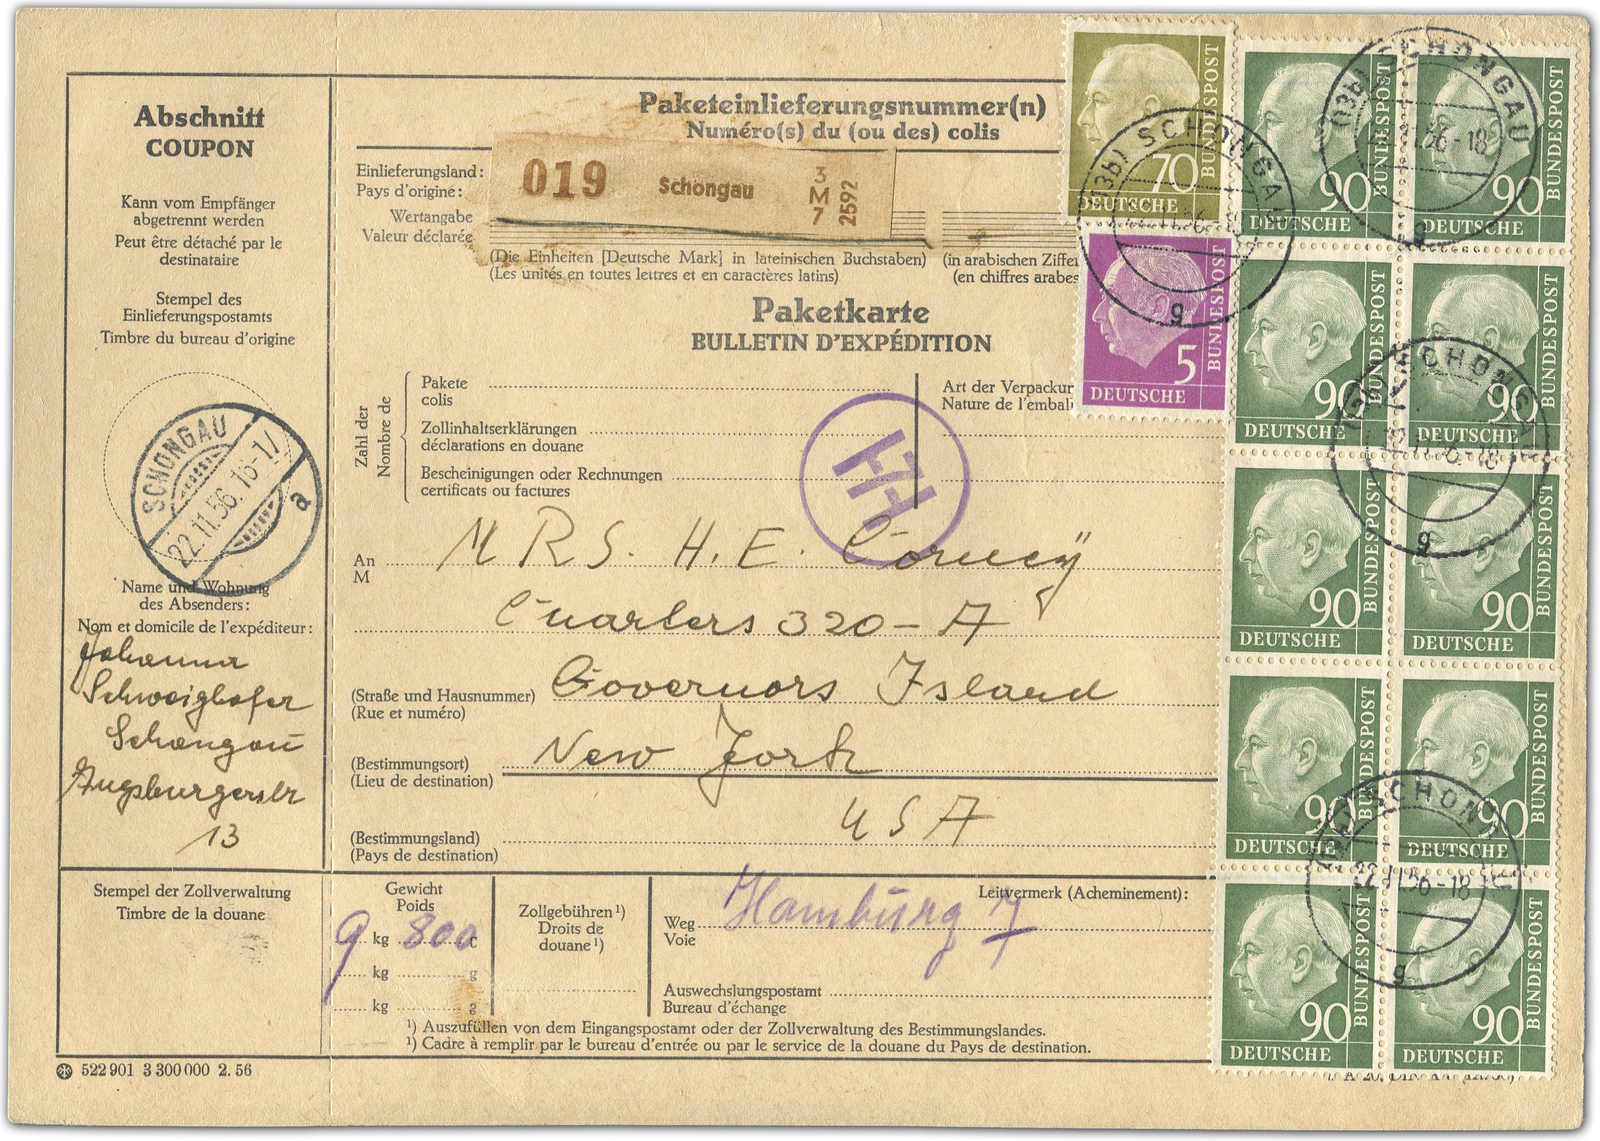 Abschnitt
COUPON
Kann vom Empfänger
abgetrennt werden
Peut être détaché par le
destinataire
Stempel des
Einlieferungspostamts
Timbre du bureau d'origine
SCHONGAU
22.11.56.16-17
a
Name und Wohnung
des Absenders:
Nom et domicile de l'expéditeur:
Johanna
Schweighofer
Schongau
Augsburgerstr
13
Stempel der Zollverwaltung
Timbre de la douane
522 901 3 300 000 2. 56
Paketeinlieferungsnummer(n)
Numéro(s) du (ou des) colis
Einlieferungsland:
Pays d'origine:
019 Schongau 3 M 7 2592
Wertangabe
Valeur déclarée
(Die Einheiten [Deutsche Mark] in lateinischen Buchstaben) (in arabischen Ziffer
(Les unités en toutes lettres et en caractères latins) (en chiffres arabes
Paketkarte
BULLETIN D'EXPÉDITION
Zahl der
Nombre de
Pakete
colis
Zollinhaltserklärungen
déclarations en douane
Bescheinigungen oder Rechnungen
certificats ou factures
Art der Verpackun
Nature de l'embali
An
M
MRS. H. E. Corney
Quarters 320-A
(Straße und Hausnummer) Governors Island
(Rue et numéro)
(Bestimmungsort) New York
(Lieu de destination)
USA
(Bestimmungsland)
(Pays de destination)
Gewicht
Poids
9 kg 800 g
kg g
kg g
Zollgebühren¹)
Droits de
douane¹)
Leitvermerk (Acheminement):
Weg
Voie
Hamburg 7
Auswechslungspostamt
Bureau d'échange
¹) Auszufüllen von dem Eingangspostamt oder der Zollverwaltung des Bestimmungslandes.
¹) Cadre à remplir par le bureau d'entrée ou par le service de la douane du Pays de destination.
70
DEUTSCHE
BUNDESPOST
5
DEUTSCHE
BUNDESPOST
90
DEUTSCHE
BUNDESPOST
90
DEUTSCHE
BUNDESPOST
90
DEUTSCHE
BUNDESPOST
90
DEUTSCHE
BUNDESPOST
90
DEUTSCHE
BUNDESPOST
90
DEUTSCHE
BUNDESPOST
90
DEUTSCHE
BUNDESPOST
90
DEUTSCHE
BUNDESPOST
90
DEUTSCHE
BUNDESPOST
90
DEUTSCHE
BUNDESPOST
(13b) SCHONGAU
g
(13b) SCHONGAU
g
SCHONGAU
g
SCHONGAU
22.11.56-18
g